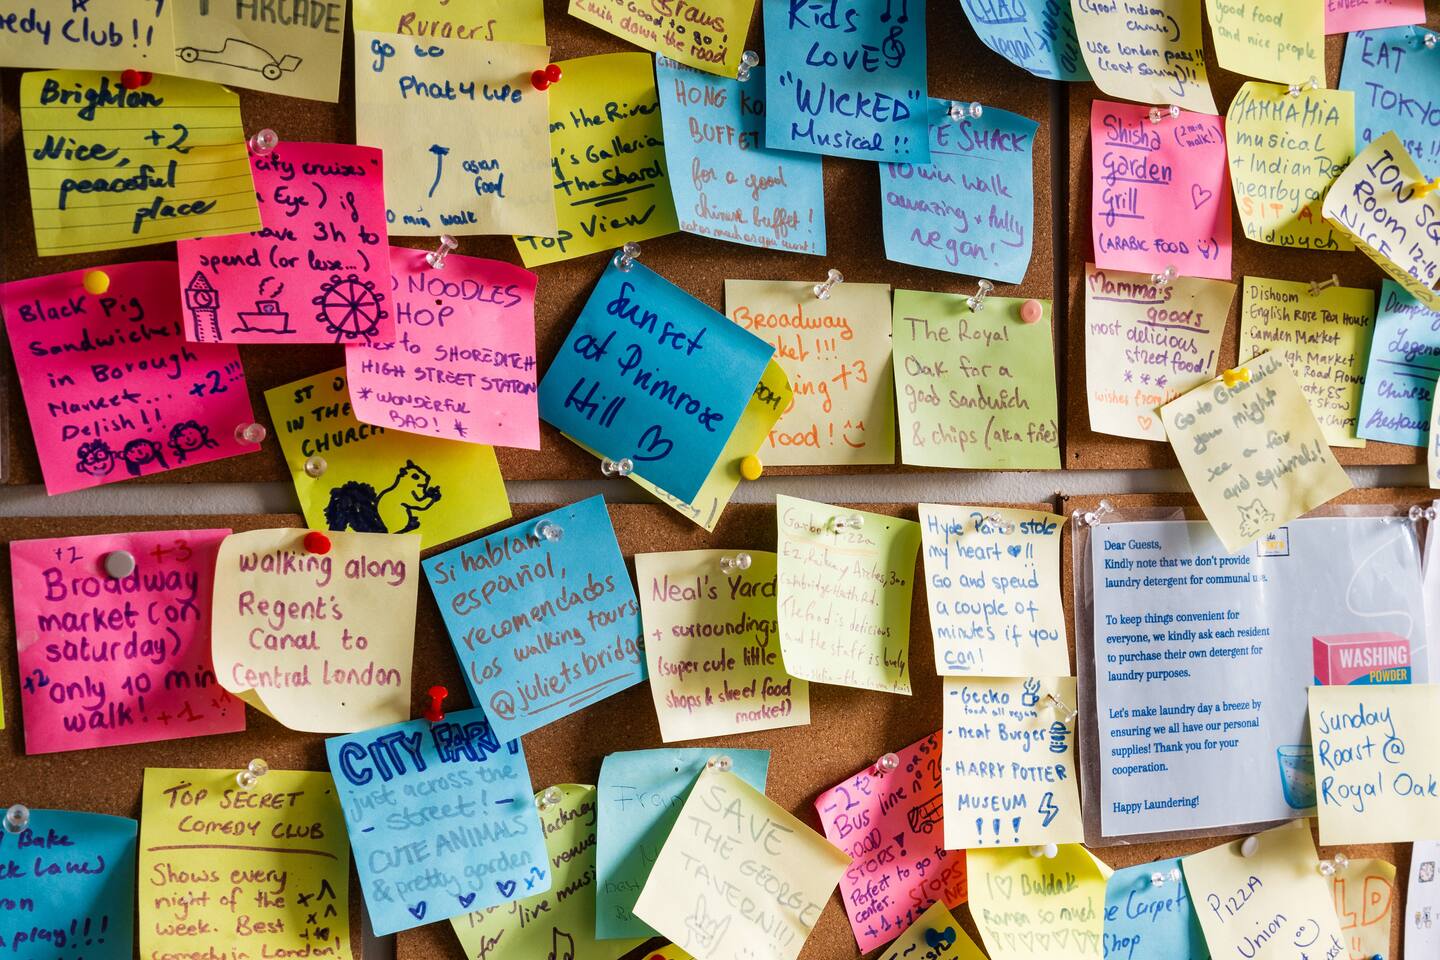 edy Club!!
ARCADE
Burgers
go to
Phat4 Life
asian
food
min walk
good to go!
2min down the road
Kids
LOVE
"WICKED"
Musical!!
(Good Indian
Use London pass!!
(Cost Saving)!!
good food
and nice people
"EAT
TOKYO
Brighton
Nice, +2
peaceful
place
city cruises"
Eye) if
have 3h to
spend (or less...)
on the River
Galleria
the Shard
Top View
HONG KO
BUFFET
for a good
chinese buffet!
eat as much as you want!
E SHACK
10 min walk
amazing + fully
vegan!
Shisha (2min
walk!)
Garden
Grill
(ARABIC FOOD
MAMMA MIA
musical
+ Indian Re
nearby
Aldwych
ION SQ
Room 12-16
NICE
Black Pig
Sandwiches
in Borough
Market... +2!!!
Delish!!
NOODLES
HOP
to SHOREDITCH
HIGH STREET STATION
*WONDERFUL
BAO! *
ST D
IN THE
CHURCH
Sunset
at Primrose
Hill
Broadway
ket!!!
ing +3
food!
The Royal
Oak for a
good sandwich
& chips (aka fries
Mamma's
goods
most delicious
street food!
* * *
·Dishoom
·English Rose Tea House
·Camden Market
Market
Road Flowe
Show
+Chips
Dumpling
Legend
Chinese
Restaur
Go to Greenwich
you might
see a fox
and squirrels!
+2 +3
Broadway
market (on
saturday)
+2 only 10 min
walk! +1
walking along
Regent's
Canal to
Central London
Si hablan
español,
recomendados
los walking tours
@julietsbridge
Neal's Yard
+ surroundings
(super cute little
shops & street food
market)
Pizza
E2, Railway Arches,
Cambridge Heath Rd.
The food is delicious
and the staff is lovely
Hyde Park stole
my heart !!
Go and spend
a couple of
minutes if you
can!
- Gecko
food all vegan
- neat Burger
- HARRY POTTER
MUSEUM
!!!
Dear Guests,
Kindly note that we don't provide
laundry detergent for communal use.
To keep things convenient for
everyone, we kindly ask each resident
to purchase their own detergent for
laundry purposes.
Let's make laundry day a breeze by
ensuring we all have our personal
supplies! Thank you for your
cooperation.
Happy Laundering!
WASHING
POWDER
Sunday
Roast @
Royal Oak
Bake
ck Lane)
play!!!
TOP SECRET
COMEDY CLUB
Shows every
night of the
week. Best
comedy in London!
CITY FARM
just across the
- street! -
CUTE ANIMALS
& pretty garden
x2
venue
live music
for
Fran
SAVE
THE GEORGE
TAVERN!!!
Bus line n°
GOOD
STOPS!
Perfect to go to
center.
STOPS
I ♡ Buldak
Ramen so much
e Carpet
Shop
PIZZA
Union
LD